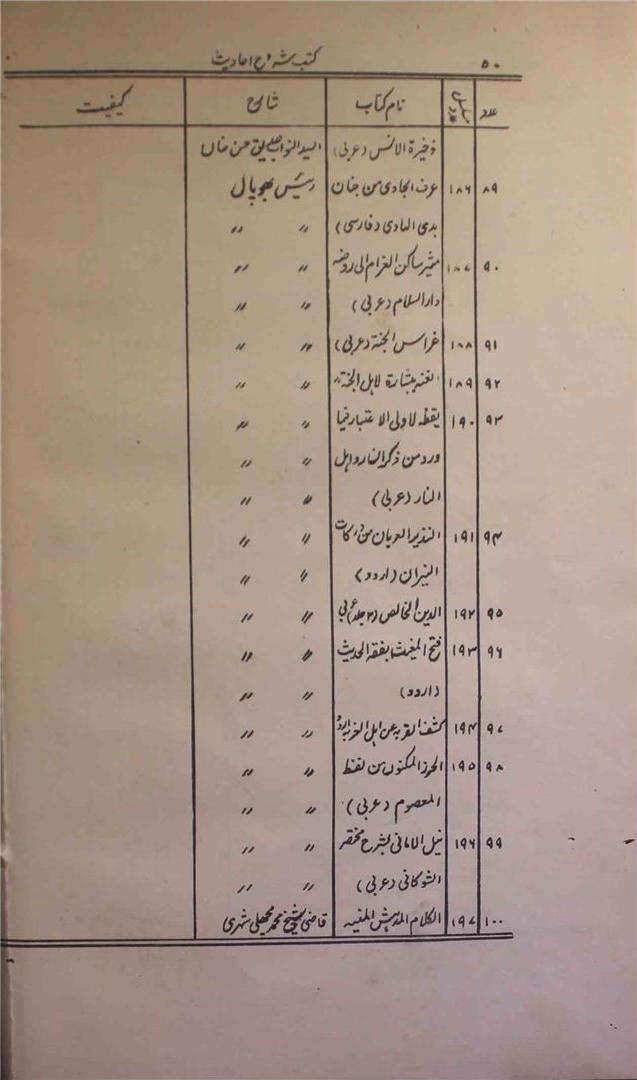 ۵۰ کتب شروح احادیث
عدد مسلسل عدد نام کتاب شارح کیفیت
ذخیرة الانس (عربی) السید النواب صدیق حسن خاں
۸۹ ۱۸۶ عرف الجادی من جنان رئیس بھوپال
ہدی الہادی (فارسی) 〃 〃
۹۰ ۱۸۷ مثیر ساکن الغرام الی روضہ 〃 〃
دار السلام (عربی) 〃 〃
۹۱ ۱۸۸ غراس الجنة (عربی) 〃 〃
۹۲ ۱۸۹ الغنہ ببشارة لاہل الجنة 〃 〃
۹۳ ۱۹۰ یقظہ لاولی الاعتبار فیما 〃 〃
ورد من ذکر النار و اہل 〃 〃
النار (عربی) 〃 〃
۹۴ ۱۹۱ النذیر العریان من درکات 〃 〃
النیران (اردو) 〃 〃
۹۵ ۱۹۲ الدین الخالص (۲ جلد) عربی 〃 〃
۹۶ ۱۹۳ فتح المغیث بفقہ الحدیث 〃 〃
(اردو) 〃 〃
۹۷ ۱۹۴ کشف الکربہ عن اہل الغربہ اردو 〃 〃
۹۸ ۱۹۵ الحرز المکنون من لفظ 〃 〃
المعصوم (عربی) 〃 〃
۹۹ ۱۹۶ نیل الامانی بشرح مختصر 〃 〃
الشوکانی (عربی) 〃 〃
۱۰۰ ۱۹۷ الکلام المنبہ قاضی شیخ محمد مچھلی شہری